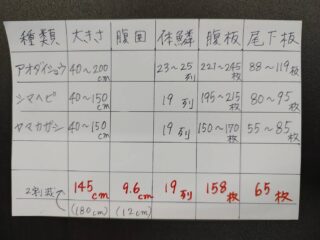 種類 大きさ 腹囲 体鱗 腹板 尾下板
アオダイショウ 40~200cm 23~25列 221~245枚 88~119枚
シマヘビ 40~150cm 19列 195~215枚 80~95枚
ヤマカガシ 40~150cm 19列 150~170枚 55~85枚
2割減 145cm 9.6cm 19列 158枚 65枚
(180cm) (12cm)